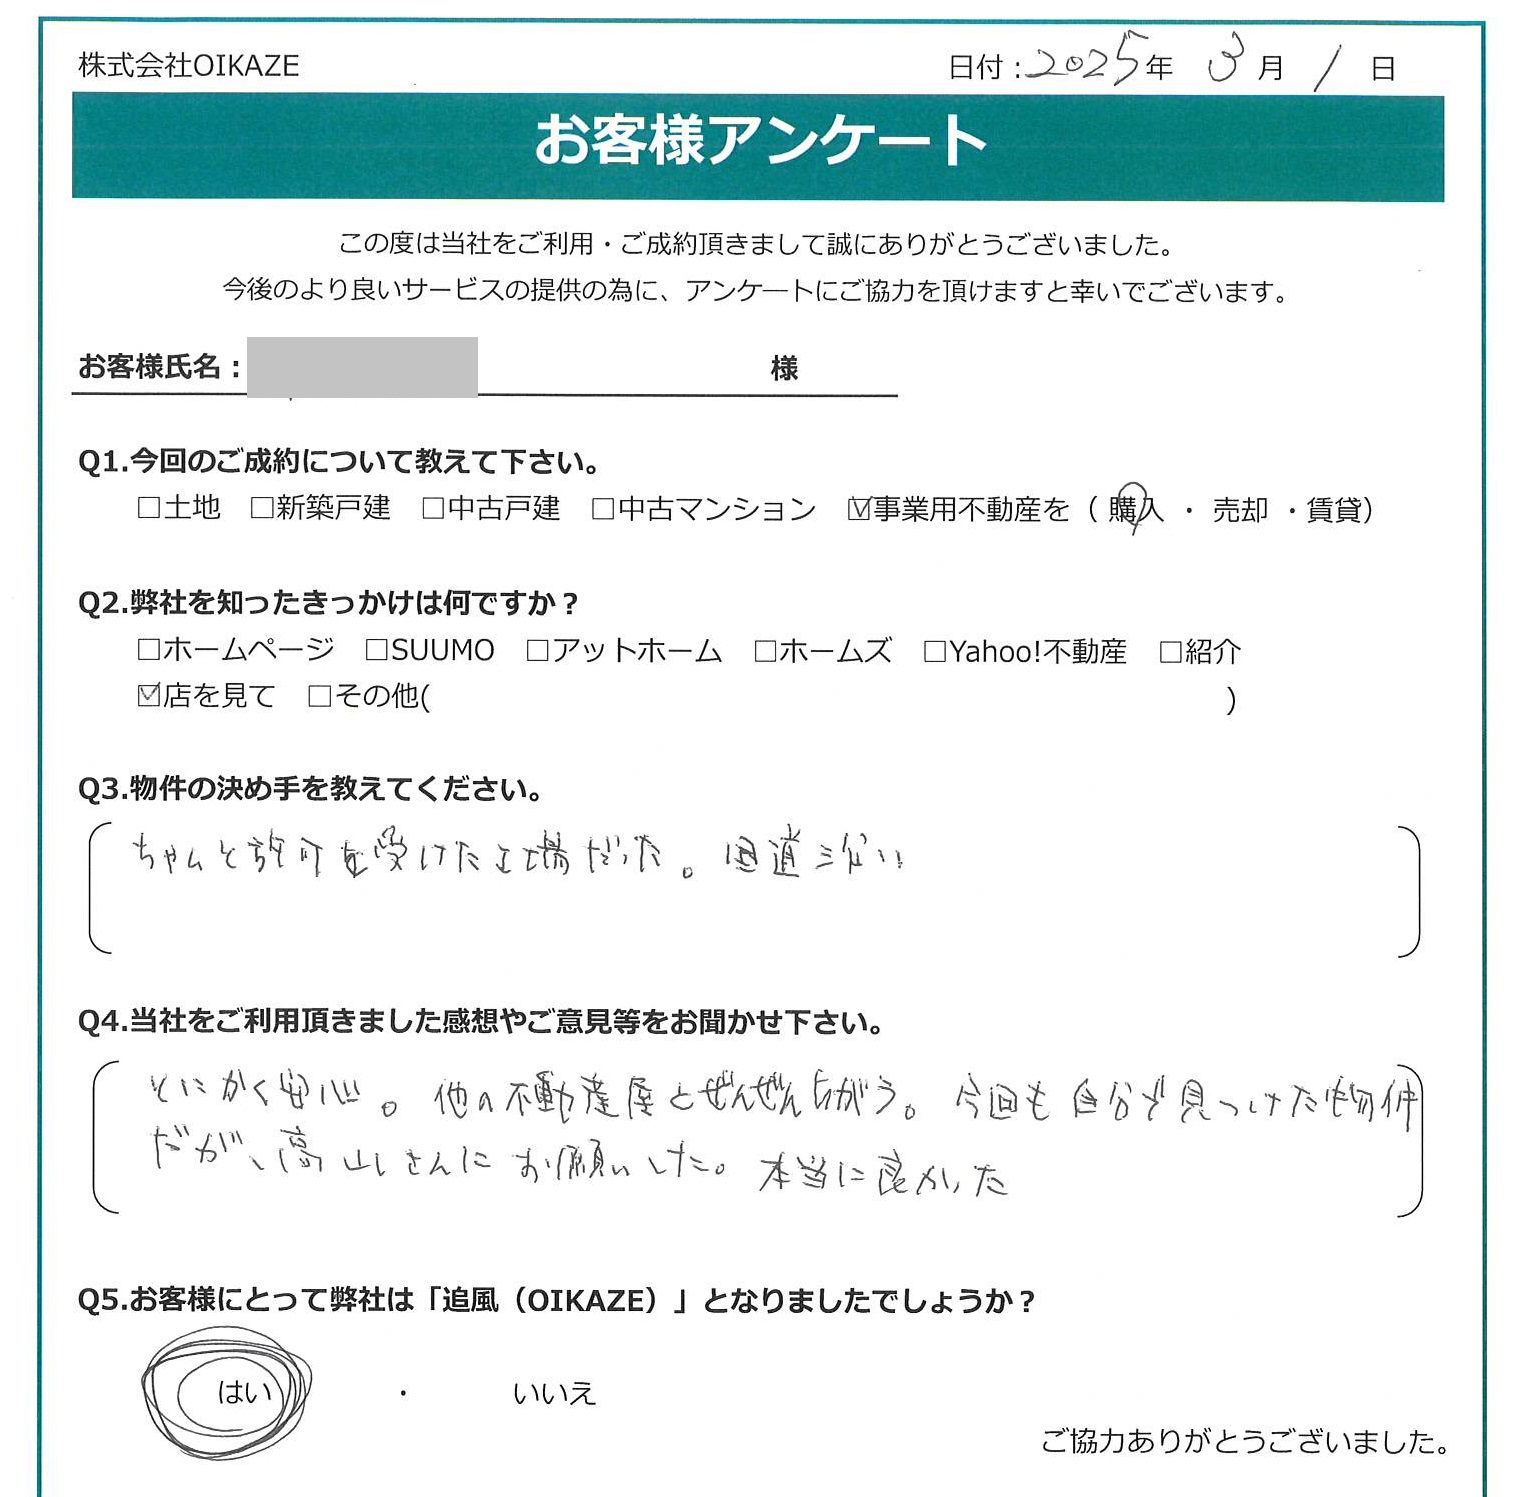 株式会社OIKAZE
日付:2025年 3月 1日
お客様アンケート
この度は当社をご利用・ご成約頂きまして誠にありがとうございました。
今後のより良いサービスの提供の為に、アンケートにご協力を頂けますと幸いでございます。
お客様氏名: 様
Q1.今回のご成約について教えて下さい。
□土地 □新築戸建 □中古戸建 □中古マンション ☑事業用不動産を(購入 ・ 売却 ・賃貸)
Q2.弊社を知ったきっかけは何ですか？
□ホームページ □SUUMO □アットホーム □ホームズ □Yahoo!不動産 □紹介
☑店を見て □その他( )
Q3.物件の決め手を教えてください。
ちゃんと許可を受けた工場だった。国道に近い
Q4.当社をご利用頂きました感想やご意見等をお聞かせ下さい。
とにかく安心。他の不動産屋とぜんぜんちがう。今回も自分で見つけた物件
だが、高山さんにお願いした。本当に良かった
Q5.お客様にとって弊社は「追風（OIKAZE）」となりましたでしょうか？
はい ・ いいえ
ご協力ありがとうございました。